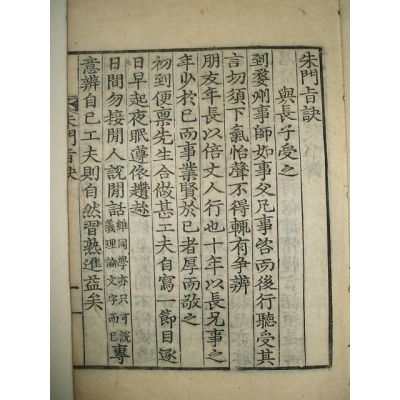 朱門旨訣
與長子受之
到婺州事師如事父凡事咨而後行聽受其
言切須下氣怡聲不得輒有爭辨
朋友年長以倍丈人行也十年以長兄事之
年少於已而事業賢於已者厚而敬之
初到便稟先生合做甚工夫自寫一節目逐
日早起夜眠遵依趲趂
日間勿接閒人說閒話雖同學亦只可說義理論文字而已專
意辨自已工夫則自然習熟進益矣
朱門旨訣 一